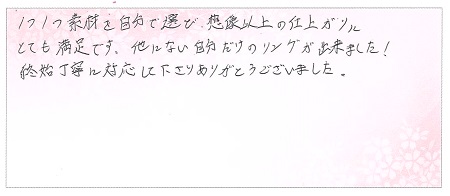 1つ1つ素材を自分で選び、想像以上の仕上がりに
とても満足です。他にない自分だけのリングが出来ました!
終始丁寧に対応して下さりありがとうございました。